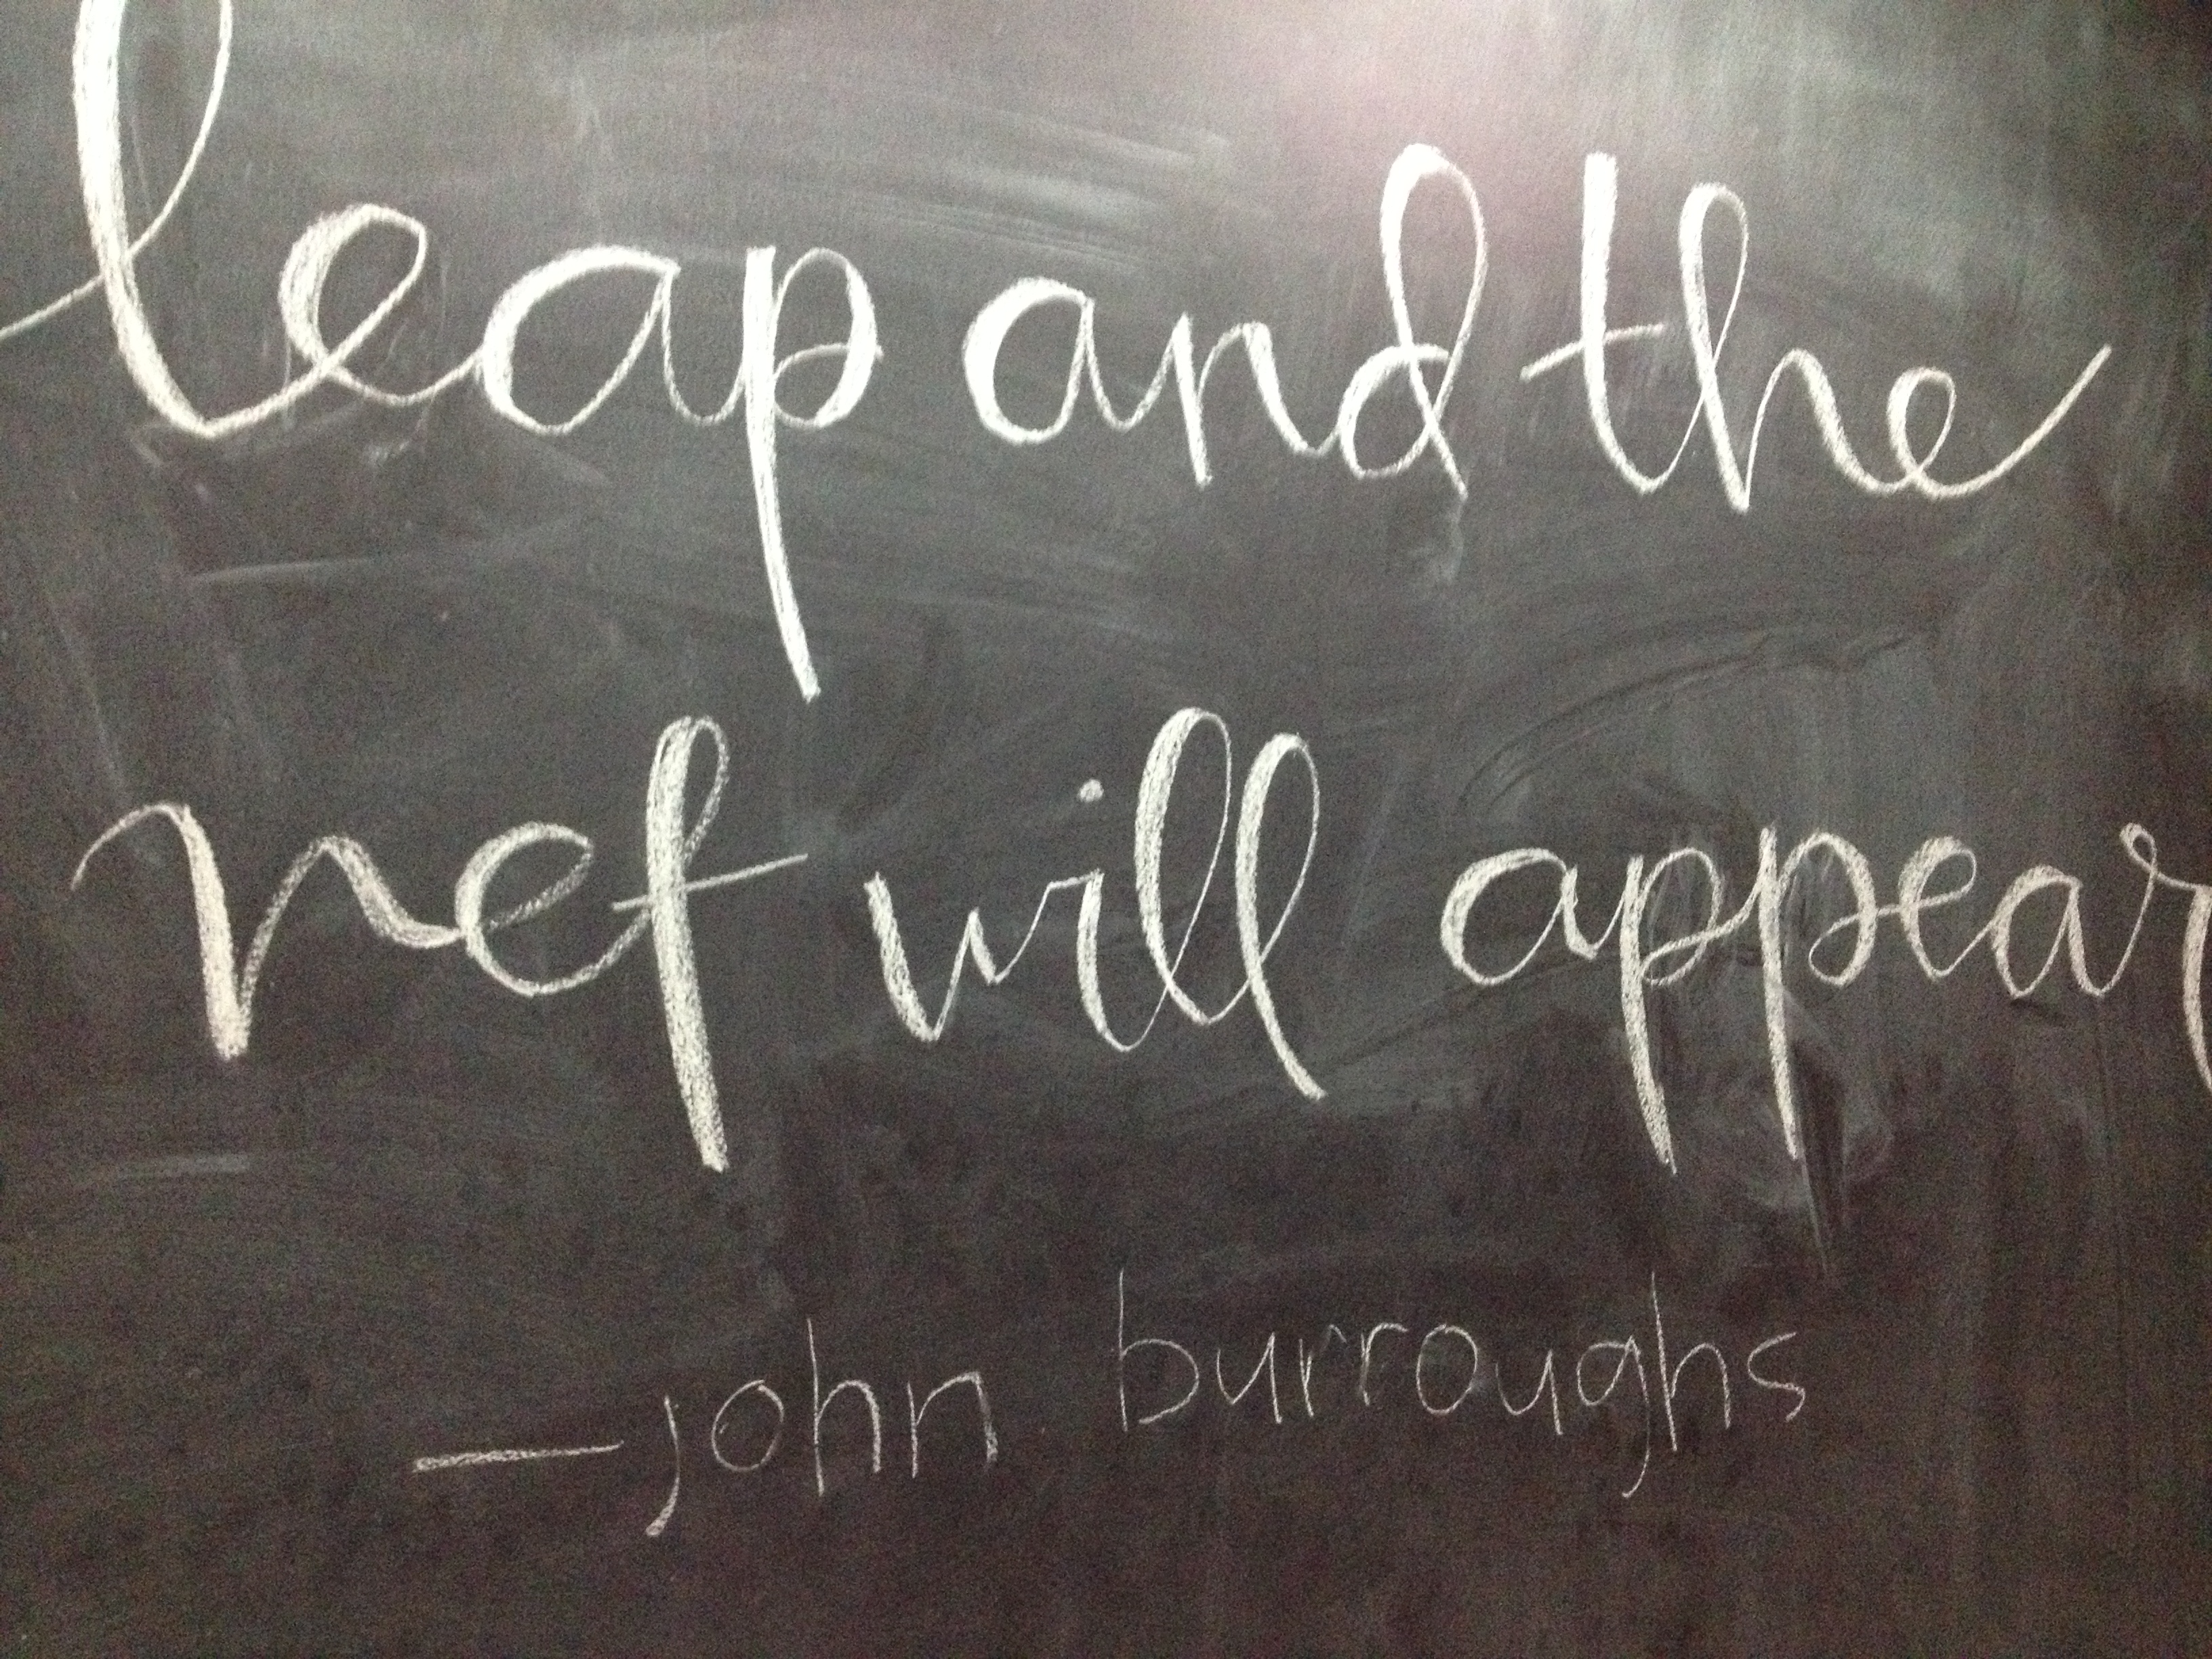 leap and the
net will appear
—john burroughs